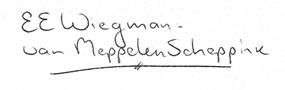 EE Wiegman-
van Meppelen Scheppink